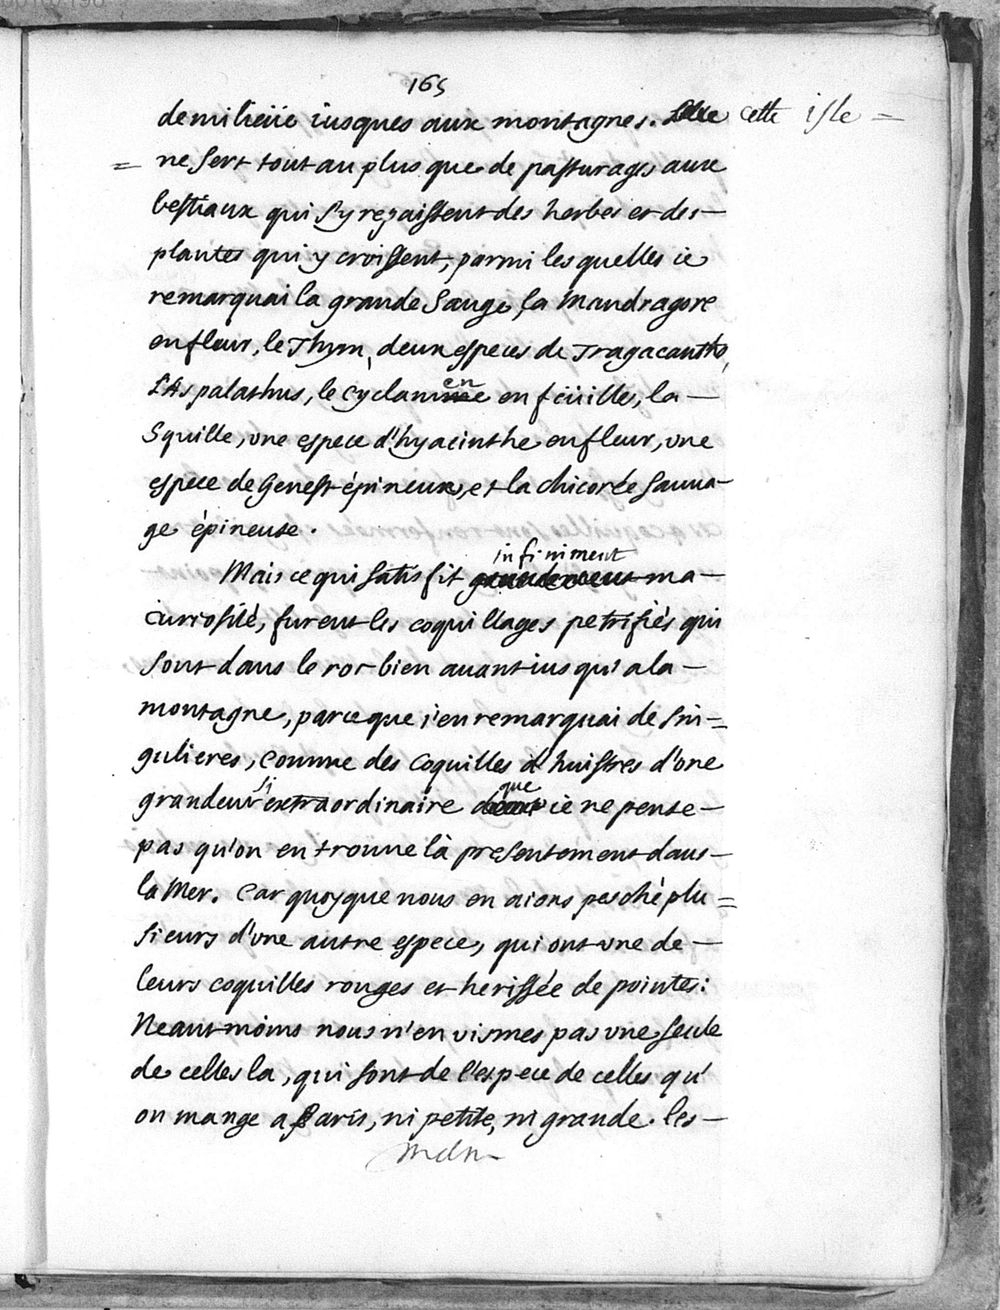 165
demilieüe iusques aux montagnes. Elle cette isle =
= ne sert tout au plus que de pasturages aux
bestiaux qui s'y repaissent des herbes et des —
plantes qui y croissent, parmi les quelles ie
remarquai la grande Sauge, la Mandragore
en fleur, le Thym, deux especes de Tragacantha,
l'Aspalathus, le Cyclamen en feüilles, la —
Squille, vne espece d'hyacinthe en fleur, vne
espece de Genest épineux, et la chicorée sauua-
ge épineuse.
infiniment
Mais ce qui satisfit grandement ma —
curiosité, furent les coquillages petrifiés qui
sont dans le roc bien auant iusqu'a la —
montagne, parce que j'en remarquai de sin =
gulieres, comme des coquilles d'huistres d'vne
si que
grandeur extraordinaire dont ie ne pense —
pas qu'on en trouue là presentement dans —
la Mer. Car quoyque nous en aions pesché plu =
sieurs d'vne autre espece, qui ont vne de —
leurs coquilles rouges et herissée de pointes:
Neantmoins nous n'en vismes pas vne seule
de celles la, qui sont de l'espece de celles qu'
on mange a Paris, ni petite, ni grande. les —